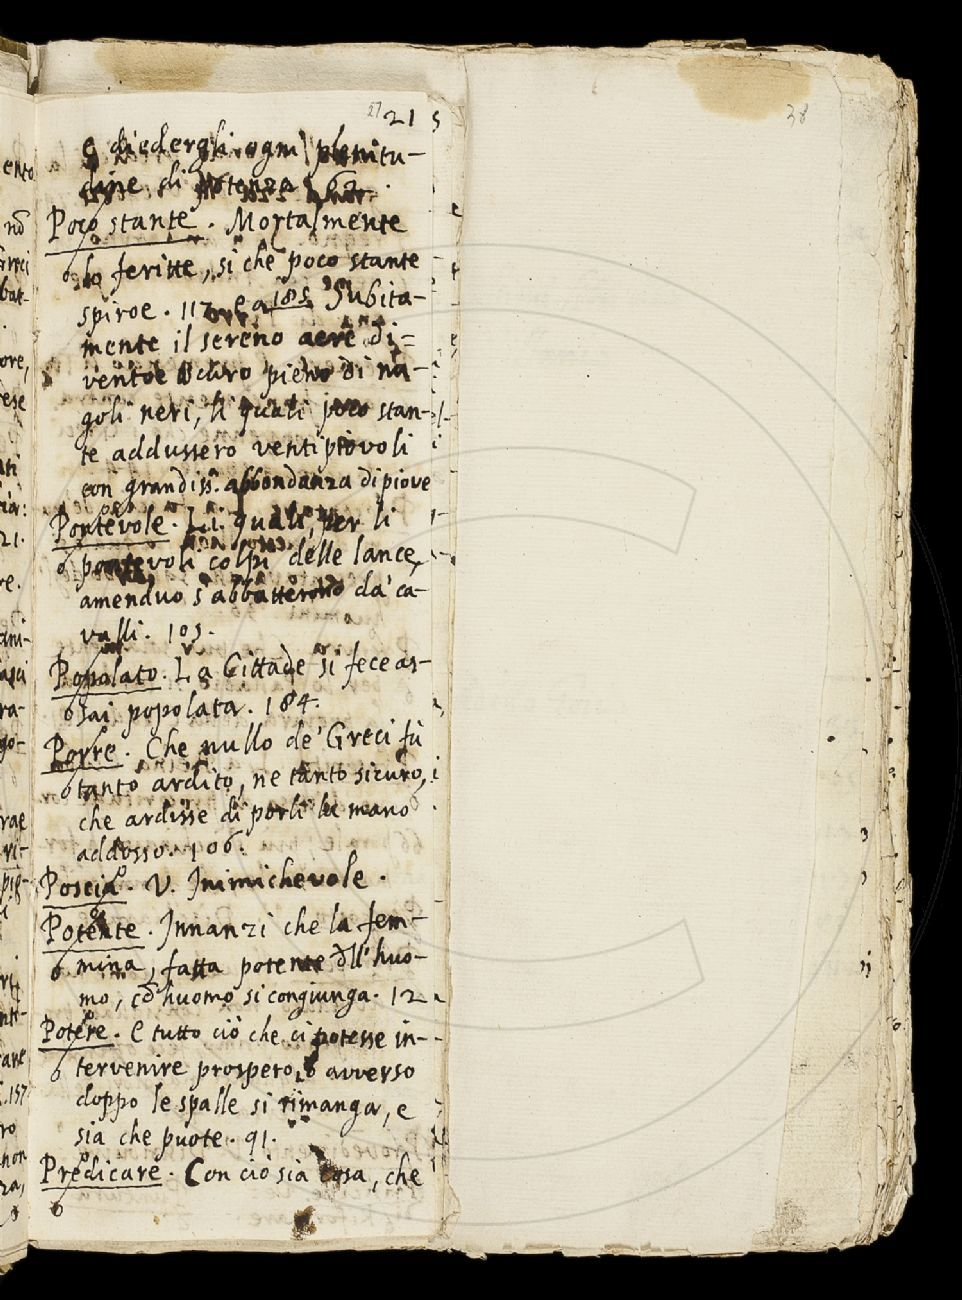 27 215
e diedergli ogni pleni­tu-
dine di potenza. 62.
Poco stante. Mortalmente
lo feritte, sì che poco stante
spiroe. 112. e a 185 Subita-
mente il sereno aere di=
ventoe oscuro pieno di nu-
goli neri, li quali poco stan-
te addussero venti piovoli
con grandiss. abbondanza di piove
Pontevole. Li quali, per li
pontevoli colpi delle lance,
amenduo s'abbatterono da' ca-
valli. 105.
Popolato. La Cittade si fece as-
sai popolata. 184.
Porre. Che nullo de' Greci fù
tanto ardito, ne tanto sicuro,
che ardisse di porli la mano
addosso. 106.
Poscia. V. Inimichevole.
Potente. Innanzi che la fem-
mina, fatta potente dll'huo-
mo, cō huomo si congiunga. 12
Potere. E tutto ciò che ci potesse in-
tervenire prospero, ò avverso
doppo le spalle si rimanga, e
sia che puote. 91.
Predicare. Con ciò sia cosa, che
38